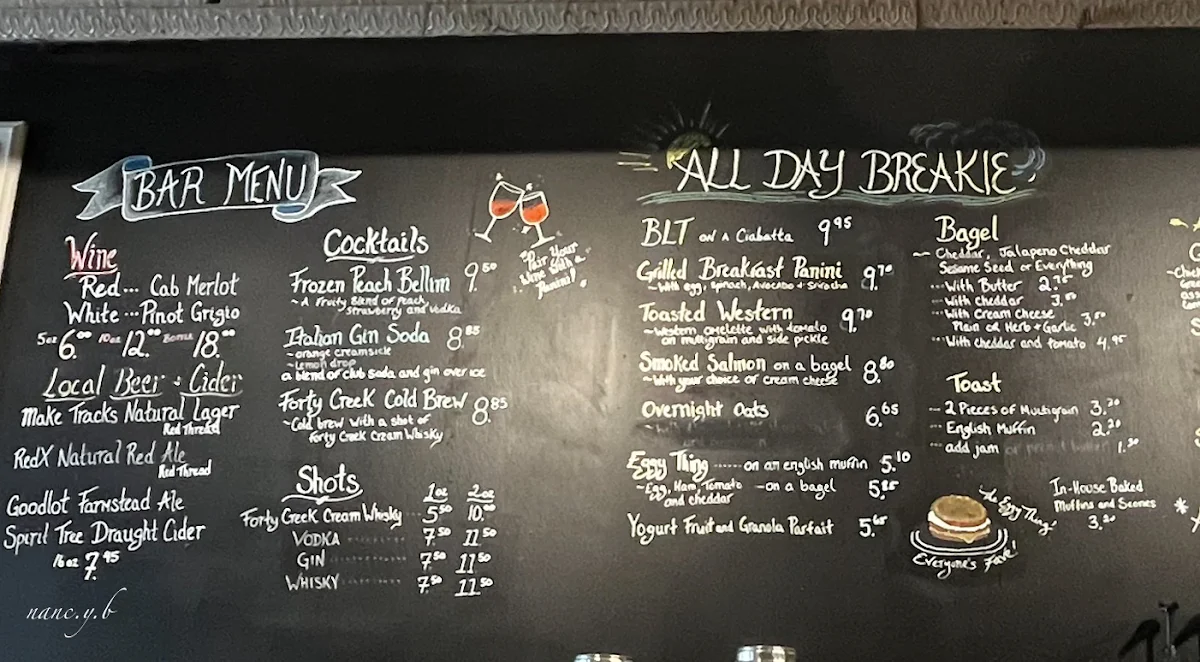 BAR MENU
Wine
Red... Cab Merlot
White... Pinot Grigio
5oz 6.00 10oz 12.00 Bottle 18.00
Local Beer & Cider
Make Tracks Natural Lager
Red Thread
RedX Natural Red Ale
Red Thread
Goodlot Farmstead Ale
Spirit Tree Draught Cider
16oz 7.95
Cocktails
Frozen Peach Bellini 9.50
~ A Fruity Blend of Peach,
Strawberry and Vodka
Italian Gin Soda 8.85
~orange creamsicle
~Lemon drop
a blend of club soda and gin over ice
Forty Creek Cold Brew 8.85
~Cold brew with a shot of
Forty Creek Cream Whisky
Shots
1oz 2oz
Forty Creek Cream Whisky 5.50 10.00
VODKA 7.50 11.50
GIN 7.50 11.50
WHISKY 7.50 11.50
Pair Your
Wine With a
Panini!
ALL DAY BREAKIE
BLT ON A Ciabatta 9.95
Grilled Breakfast Panini 9.70
~With egg, spinach, Avocado + Sriracha
Toasted Western 9.70
~Western omelette with tomato
on multigrain and side pickle
Smoked Salmon on a bagel 8.80
~With your choice of cream cheese
Overnight Oats 6.65
Eggy Thing ...... on an english muffin 5.10
~Egg, Ham, Tomato - on a bagel 5.85
and cheddar
Yogurt Fruit and Granola Parfait 5.65
Bagel
~ Cheddar, Jalapeno Cheddar
Sesame Seed or Everything
... With Butter 2.75
... With cheddar
... With Cream Cheese
Plain or Herb + Garlic 3.50
... With cheddar and tomato 4.95
Toast
- 2 Pieces of Multigrain 3.20
... English Muffin 2.20
... add jam
The Eggy Thing!
Everyone's Fave!
In-House Baked
Muffins and Scones
3.20
nanc.y.b